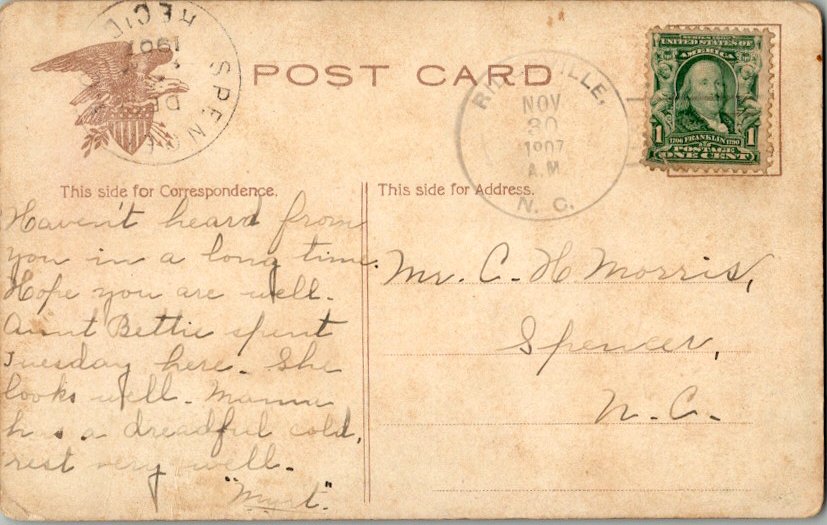 SPENC
REC'D
DE
1907
POST CARD
VILLE,
NOV
30
1907
A.M.
N. C.
SERIES 1902
UNITED STATES OF AMERICA
1 1706 FRANKLIN 1790 1
POSTAGE
ONE CENT
This side for Correspondence.
This side for Address.
Haven't heard from
you in a long time.
Hope you are well.
Aunt Bettie spent
Tuesday here. She
looks well. Mama
has a dreadful cold,
rest very well.
Mr. C. H. Morris,
Spencer,
N. C.